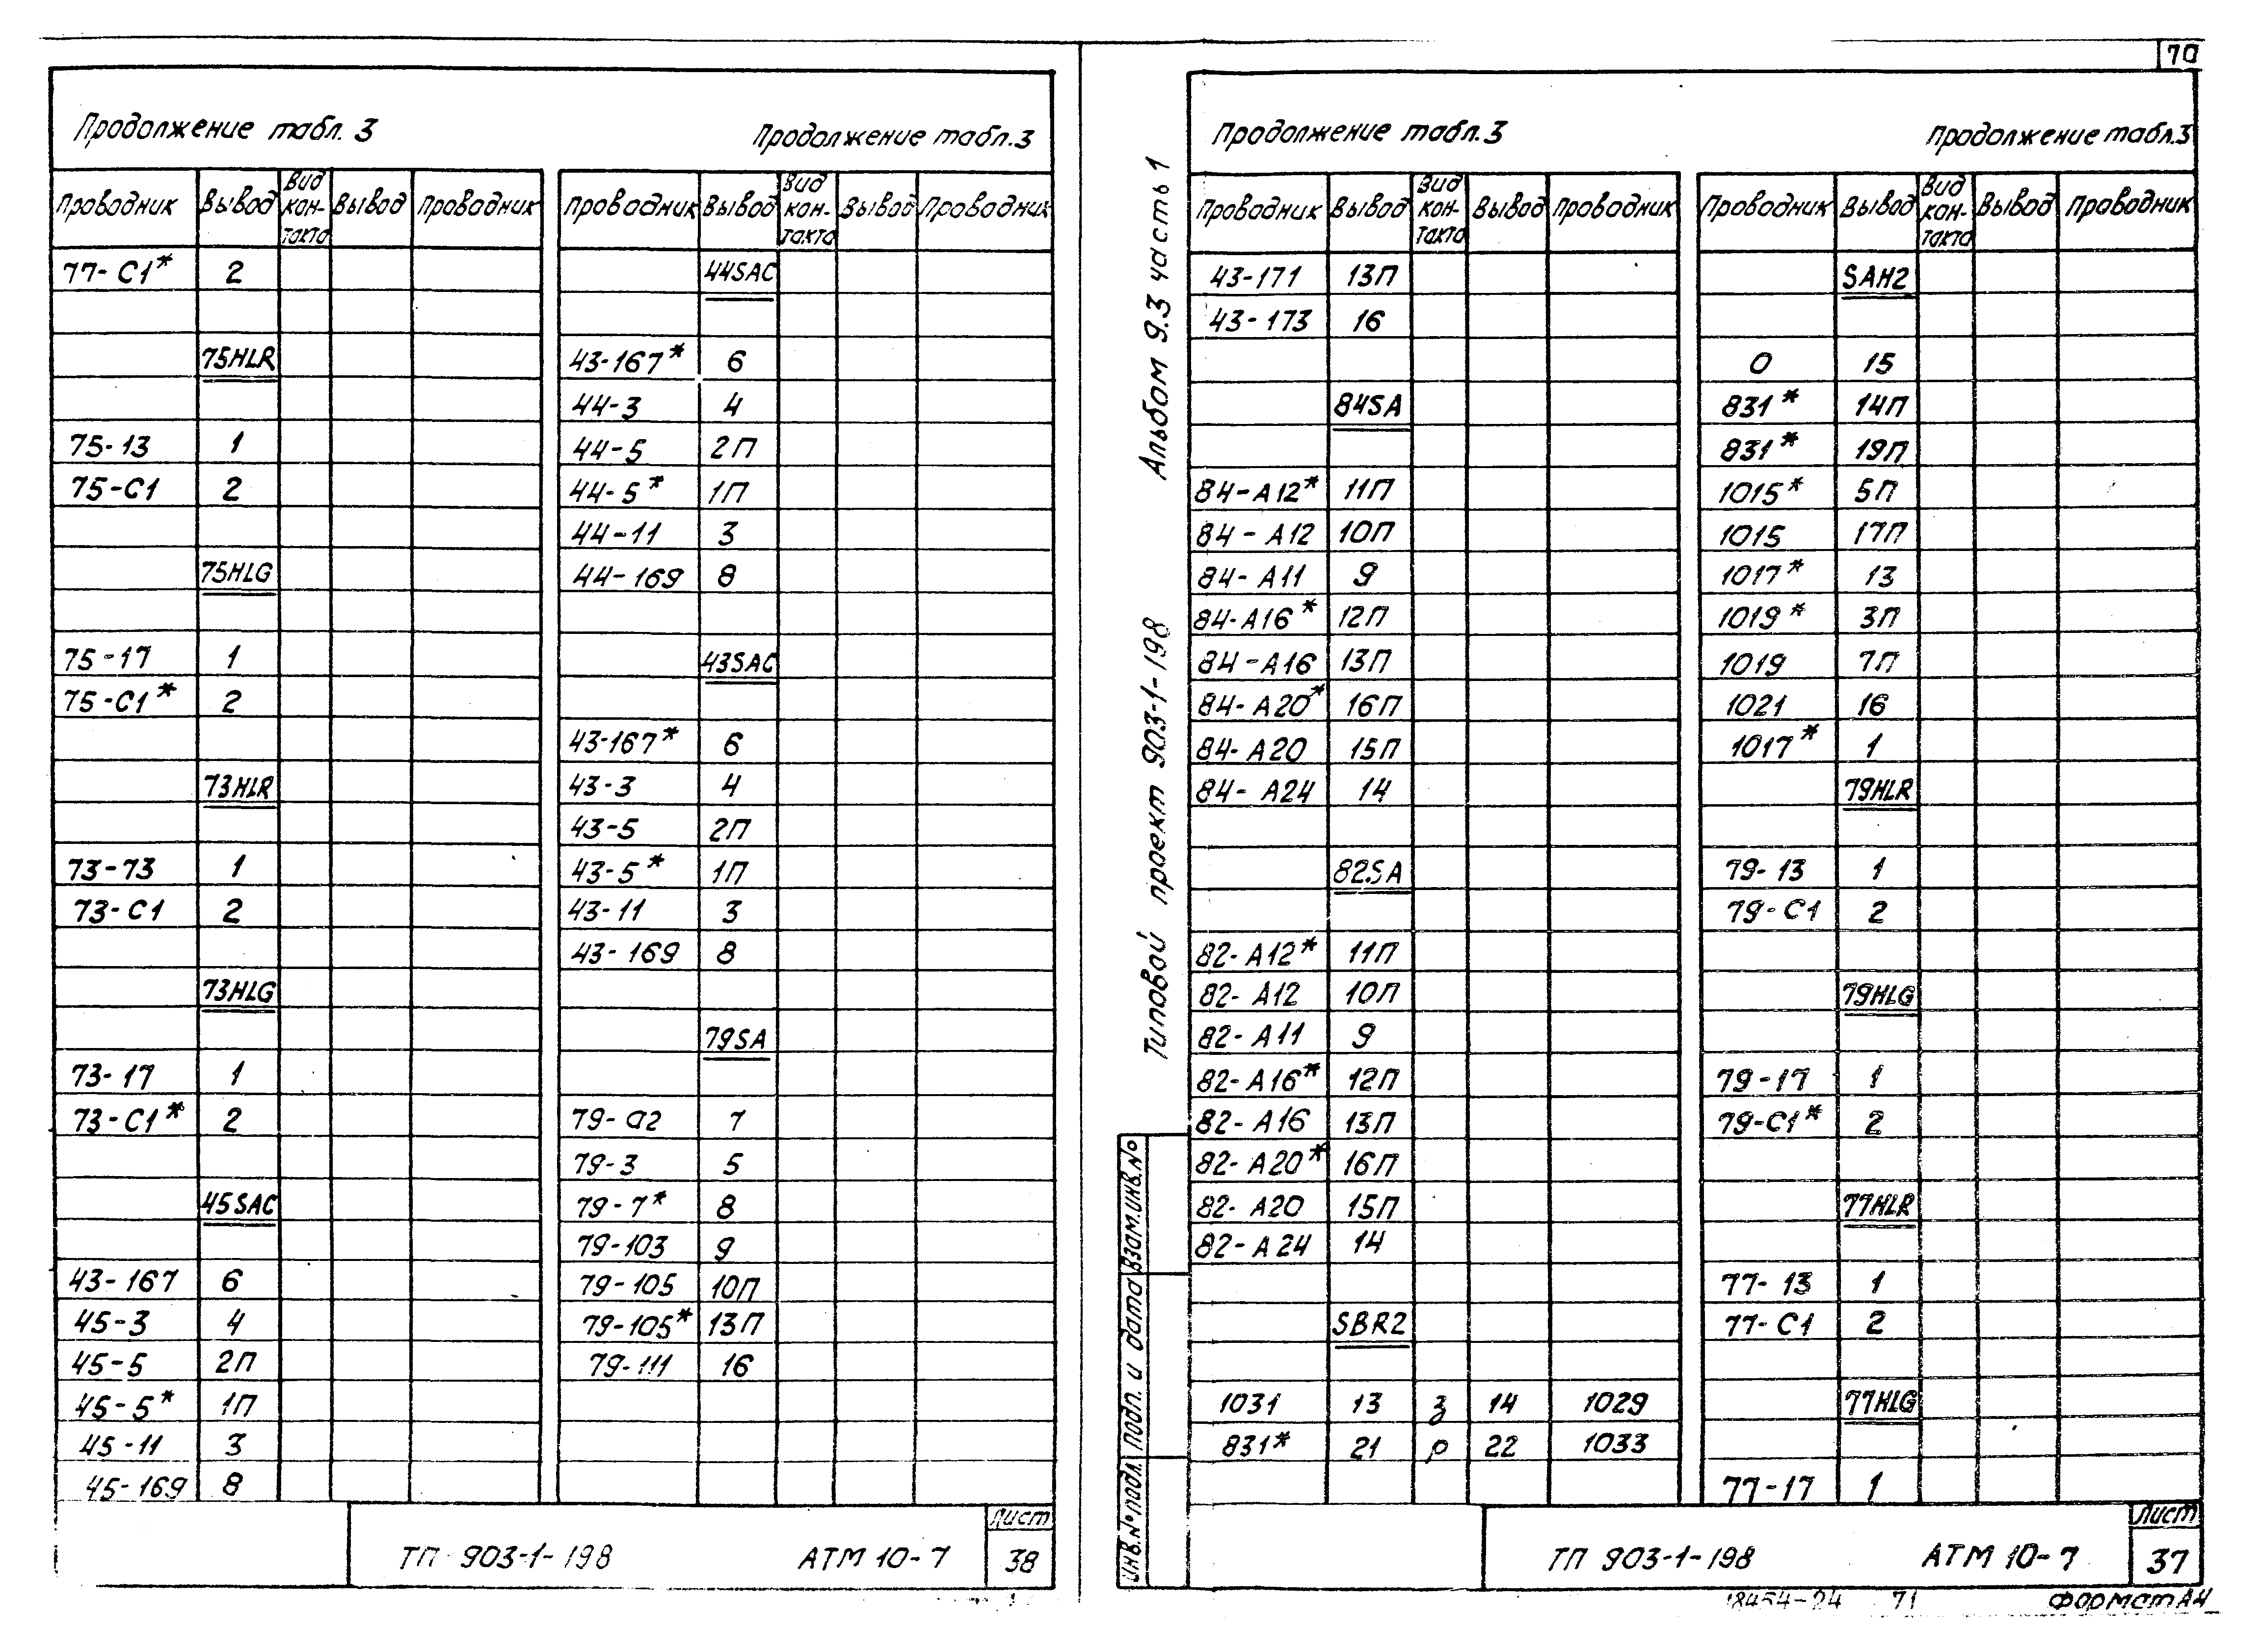 70
Продолжение табл. 3
Продолжение табл.3
Проводник Вывод Вид кон- такта Вывод Проводник
77-С1* 2
75HLR
75-13 1
75-С1 2
75HLG
75-17 1
75-С1* 2
73HLR
73-73 1
73-С1 2
73HLG
73-17 1
73-С1* 2
45SAC
43-167 6
45-3 4
45-5 2П
45-5* 1П
45-11 3
45-169 8
Проводник Вывод Вид кон- такта Вывод Проводник
44SAC
43-167* 6
44-3 4
44-5 2П
44-5* 1П
44-11 3
44-169 8
43SAC
43-167* 6
43-3 4
43-5 2П
43-5* 1П
43-11 3
43-169 8
79SA
79-а2 7
79-3 5
79-7* 8
79-103 9
79-105 10П
79-105* 13П
79-111 16
ТП 903-1-198 АТМ 10-7
Лист
38
Альбом 9.3 часть 1
Типовой проект 903-1-198
Инв.№подл. Подп. и дата Взам.инв.№
Продолжение табл.3
Продолжение табл.3
Проводник Вывод Вид кон- такта Вывод Проводник
43-171 13П
43-173 16
84SA
84-А12* 11П
84-А12 10П
84-А11 9
84-А16* 12П
84-А16 13П
84-А20* 16П
84-А20 15П
84-А24 14
82SA
82-А12* 11П
82-А12 10П
82-А11 9
82-А16* 12П
82-А16 13П
82-А20* 16П
82-А20 15П
82-А24 14
SBR2
1031 13 з 14 1029
831* 21 р 22 1033
Проводник Вывод Вид кон- такта Вывод Проводник
SAH2
0 15
831* 14П
831* 19П
1015* 5П
1015 17П
1017* 13
1019* 3П
1019 7П
1021 16
1017* 1
79HLR
79-13 1
79-С1 2
79HLG
79-17 1
79-С1* 2
77HLR
77-13 1
77-С1 2
77HLG
77-17 1
ТП 903-1-198 АТМ 10-7
Лист
37
18454-24 71 Формат А4